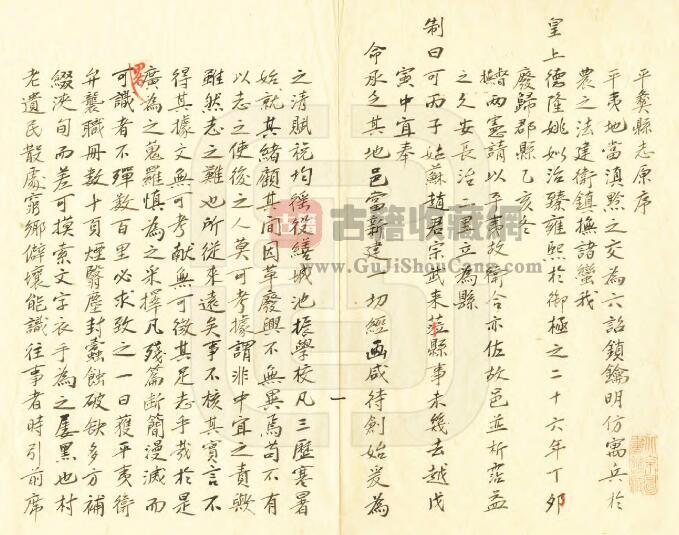 平彝縣志原序
平夷地當滇黔之交為六詔鎖鑰明仿寓兵於
農之法建衛鎮撫諸蠻我
皇上德隆姚姒治臻雍熙於御極之二十六年丁卯
廢歸郡縣乙亥冬
督撫兩憲請以平夷故衛合亦佐故邑並析霑益
之久安長治二里立為縣
制曰可丙子姑蘇趙君宗武來蒞縣事未幾去越戊
寅中宜奉
命承乏其地邑當新建一切經畫咸待創始爰為
之清賦稅均徭役繕城池振學校凡三歷寒暑
始就其緒顧其間因革廢興不無異焉苟不有
以志之使後之人莫可考據謂非中宜之責歟
雖然志之難也所從來遠矣事不核其實言不
得其據文無可考獻無可徵其足志乎哉於是
廣為之蒐羅慎為之采擇凡殘篇斷簡漫滅而
可識者不彈數百里必求致之一日獲平夷衛
弁襲職冊數十頁煙翳塵封蠹蝕破缺多方補
綴浹旬而差可摸索文字衣手為之屢黑也村
老遺民散處窮鄉僻壤能識往事者時引前席
一
古籍收藏网
www.GuJiShouCang.com